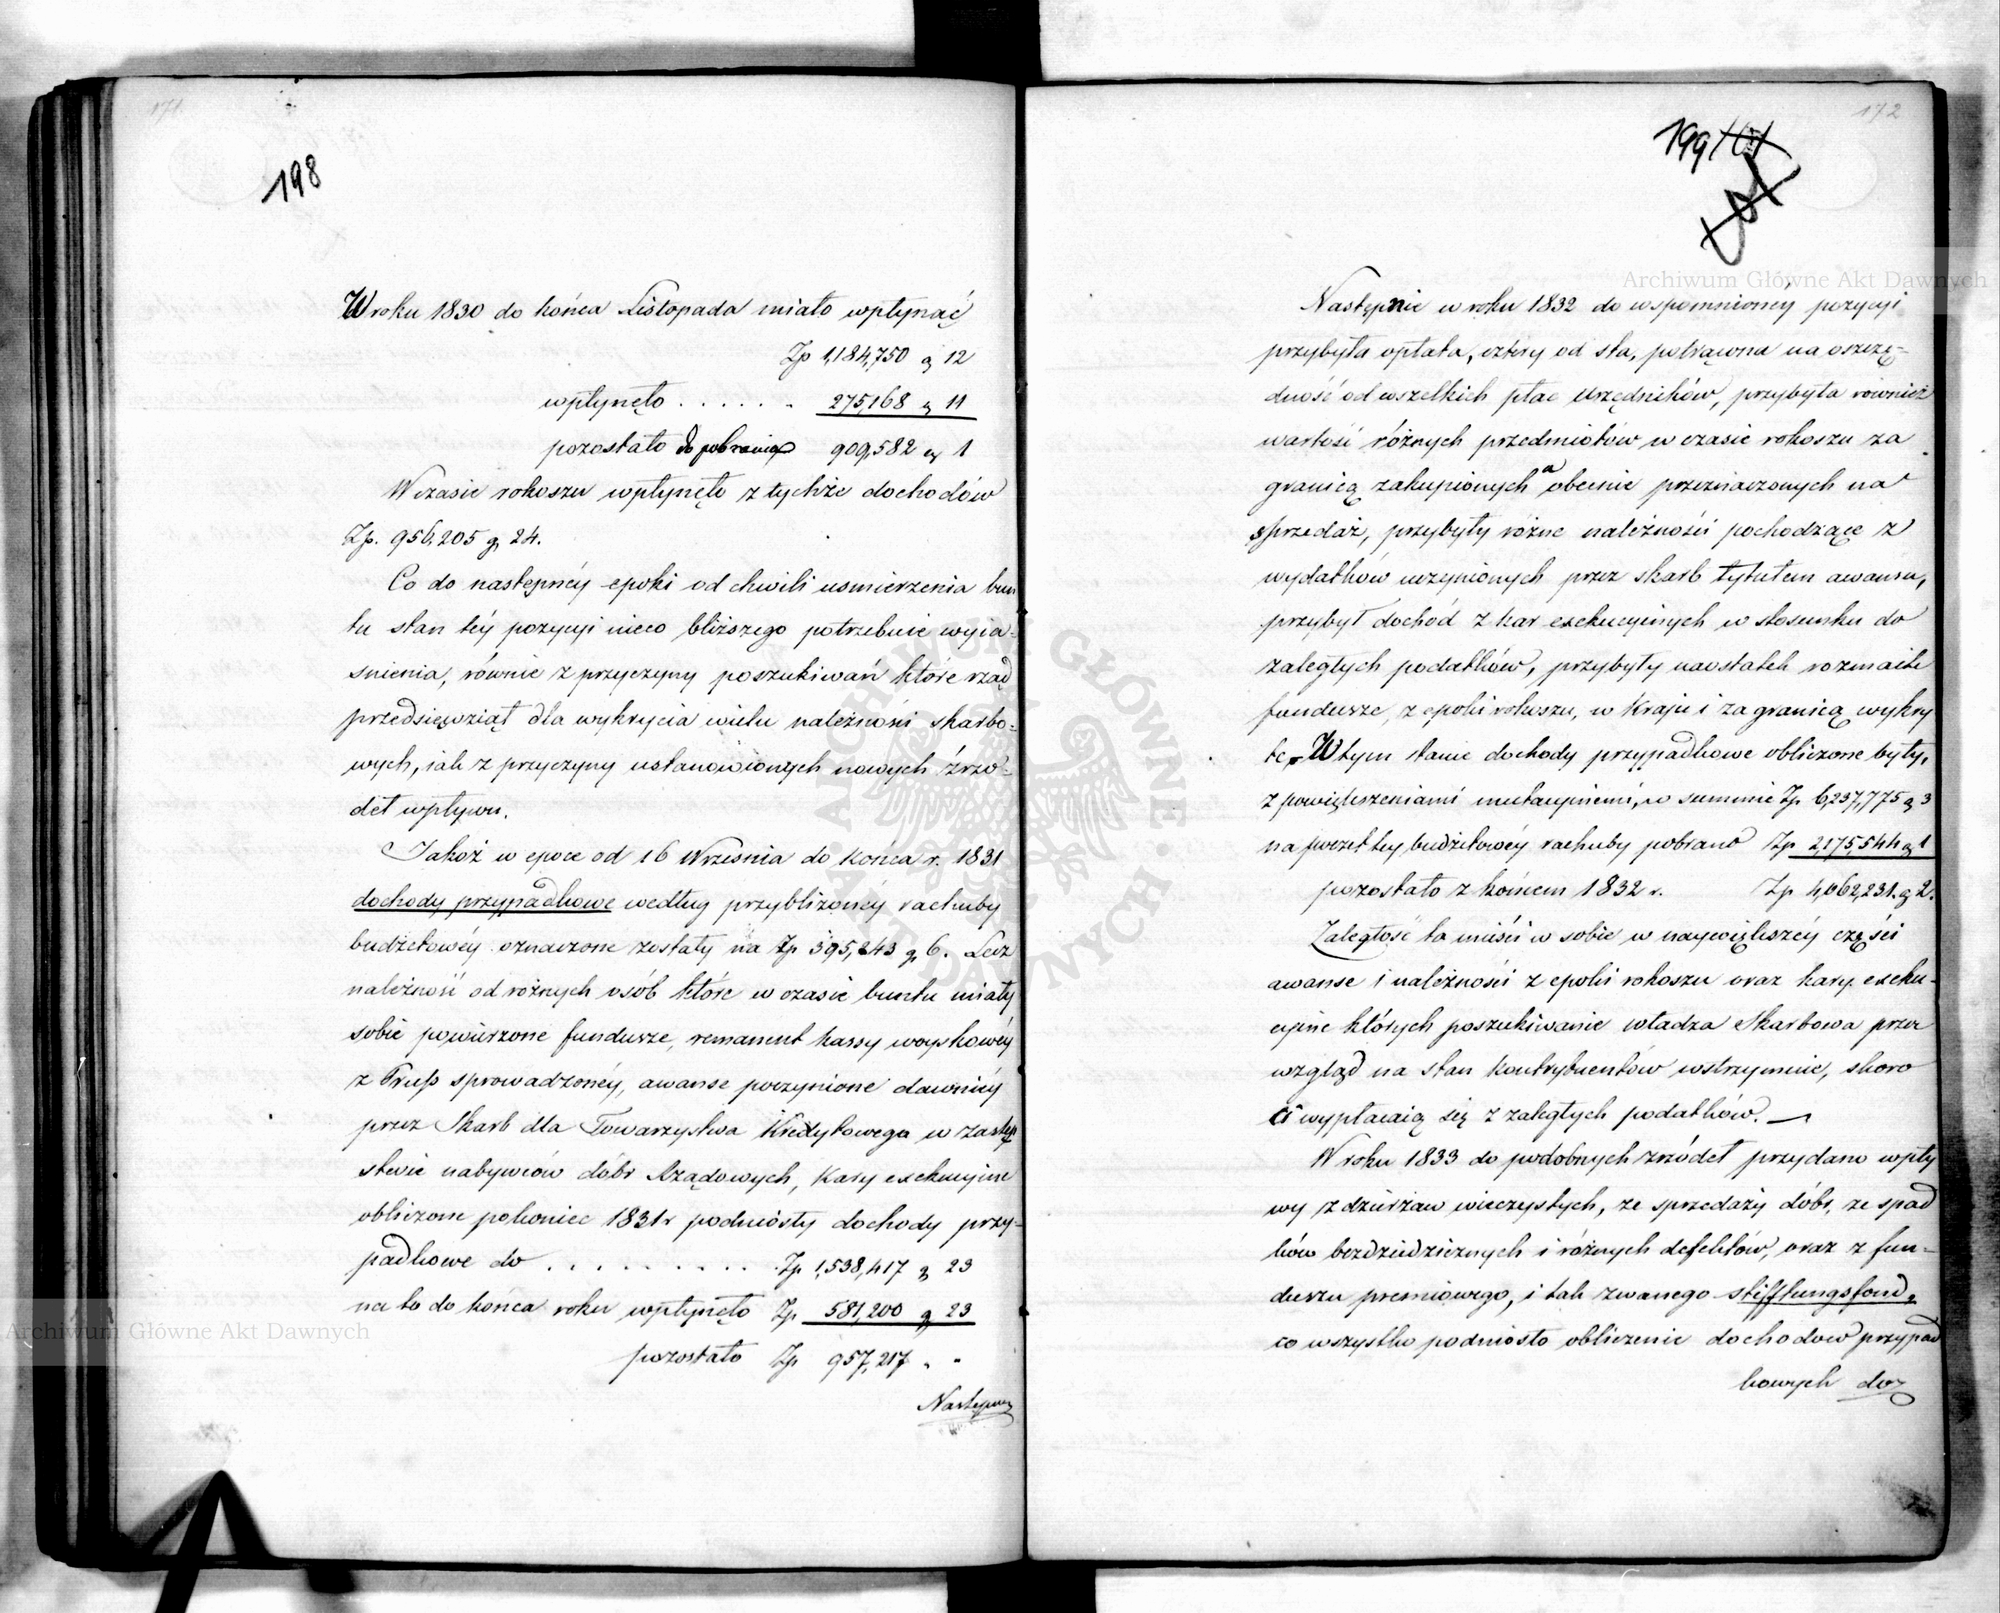 171
198
W roku 1830 do końca Listopada miało wpłynąć
Zp 1,184,750 g 12
wpłynęło . . . . . . 275,168 g 11
pozostało do pobrania 909,582 g 1
W czasie rokoszu wpłynęło z tychże dochodów
Zp. 956,205 g 24.
Co do następnéy epoki od chwili uśmierzenia bun
tu stan téy pozycyi nieco bliższego potrzebuie wyia-
śnienia, równie z przyczyny poszukiwań które rząd
przedsięwziął dla wykrycia wielu należności skarbo-
wych, iak z przyczyny ustanowionych nowych źrzó-
deł wpływu.
Jakoż w epoce od 16 Września do końca r. 1831
dochody przypadkowe według przybliżonéy rachuby
budżetowéy oznaczone zostały na Zp 395,243 g 6. Lecz
należność od różnych osób które w czasie buntu miały
sobie powierzone fundusze, remanent kassy woyskowéy
z Pruss sprowadzonéy, awanse poczynione dawniéy
przez Skarb dla Towarzystwa Kredytowego w zastęp
stwie nabywców dóbr Rządowych, kary exekucyine
obliczone po koniec 1831 r podniosły dochody przy-
padkowe do . . . . . . . . . . Zp 1,538,417 g 23
na to do końca roku wpłynęło Zp 581,200 g 23
pozostało Zp 957,217 " "
Następnie
172
199
Następnie w roku 1832 do wspomnionéy pozycyi
przybyła opłata, cztéry od sta, potrącona na oszczę-
dność od wszelkich płac Urzędników, przybyła również
wartość różnych przedmiotów w czasie rokoszu za
granicą zakupionych a obecnie przeznaczonych na
sprzedaż, przybyły różne należności pochodzące z
wydatków uczynionych przez skarb tytułem awansu,
przybył dochód z kar exekucyinych w stosunku do
zaległych podatków, przybyły naostatek rozmaite
fundusze, z epoki rokoszu, w Kraju i za granicą wykry
te. W tym stanie dochody przypadkowe obliczone były,
z powiększeniami mutacyinemi, w summie Zp 6,237,775 g 3
na poczet tey budżetowéy rachuby pobrano Zp 2,175,544 g 1
pozostało z końcem 1832 r. Zp 4,062,231. g 2.
Zaległość ta mieści w sobie w naywiększéy części
awanse i należności z epoki rokoszu oraz kary exeku-
cyine których poszukiwanie władza Skarbowa przez
wzgląd na stan kontrybuentów wstrzymuie, skoro
ci wypłacaią się z zaległych podatków. —
W roku 1833 do podobnych źrzódeł przydano wpły
wy z dzierżaw wieczystych, ze sprzedaży dóbr, ze spad
ków bezdziedzicznych i różnych defektów, oraz z fun-
duszu premiowego, i tak zwanego stifftungsfond,
co wszystko podniosło obliczenie dochodów przypad
kowych do
Archiwum Główne Akt Dawnych
Archiwum Główne Akt Dawnych
ARCHIWUM GŁÓWNE AKT DAWNYCH